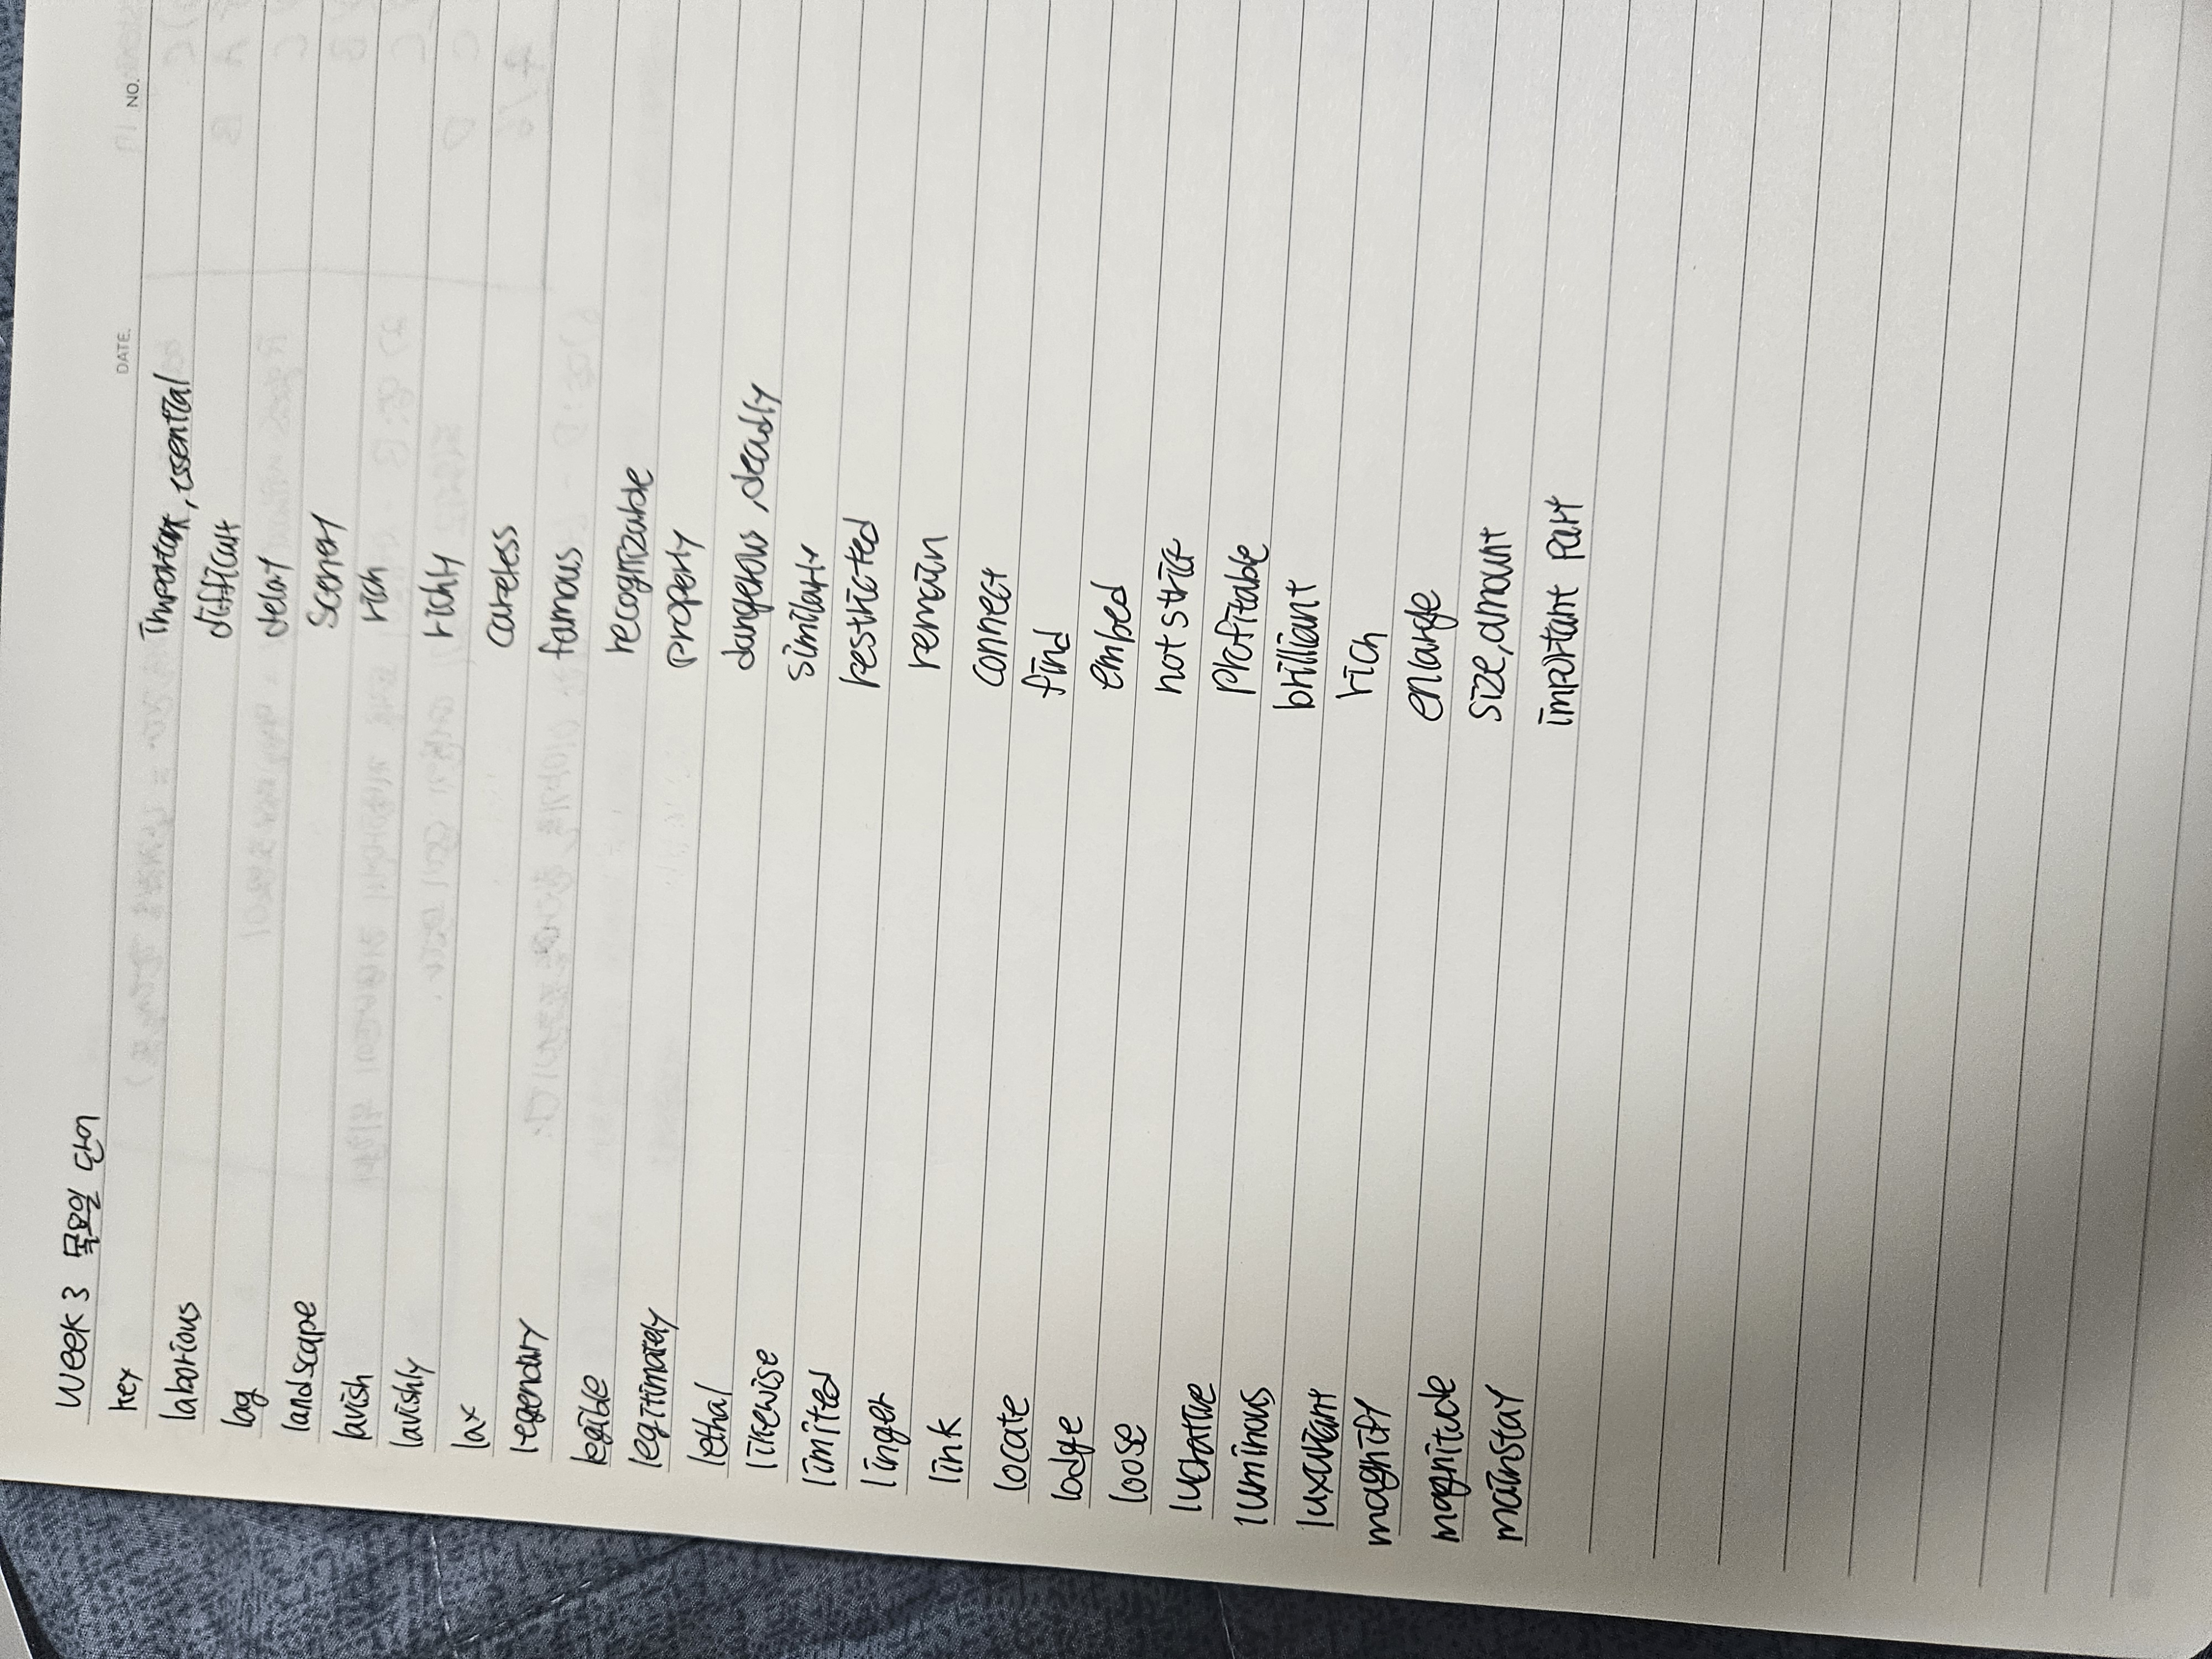 DATE. NO.
Week 3 목요일 단어
key important, essential
laborious difficult
lag delay
landscape scenery
lavish rich
lavishly richly
lax careless
legendary famous
legible recognizable
legitimately properly
lethal dangerous, deadly
likewise similarly
limited restricted
linger remain
link connect
locate find
lodge embed
loose not strict
lucrative profitable
luminous brilliant
luxuriant rich
magnify enlarge
magnitude size, amount
mainstay important part